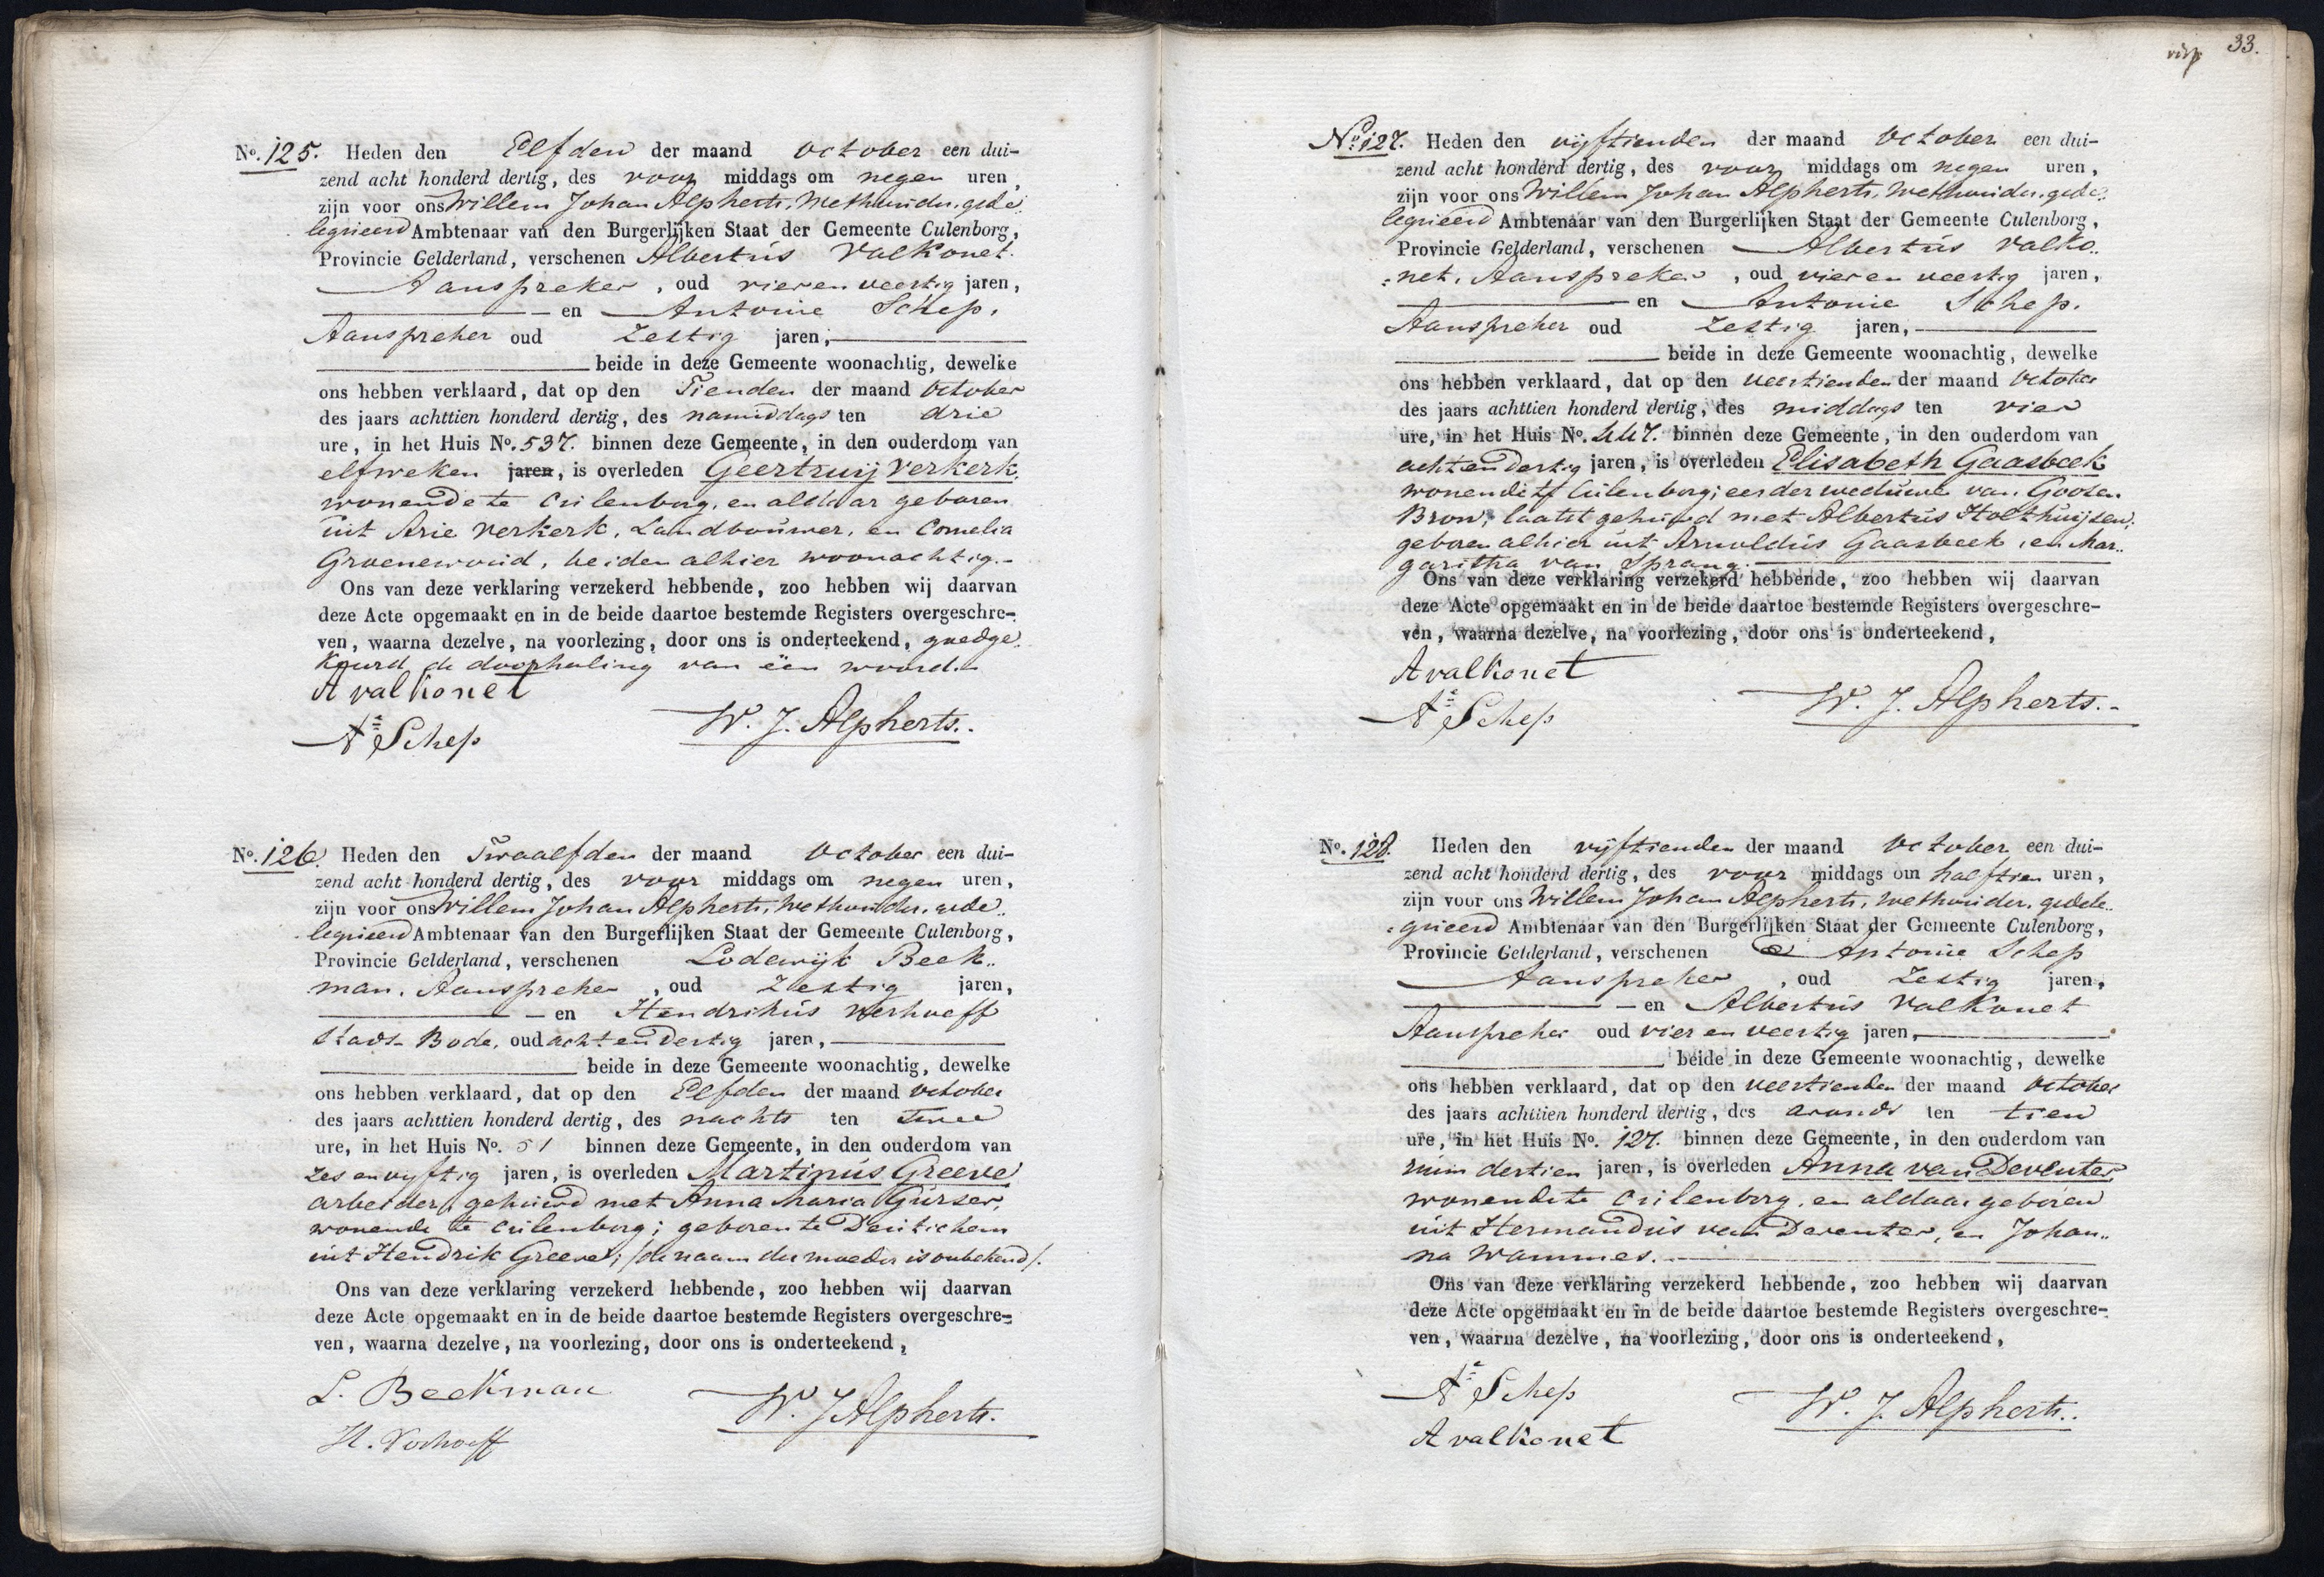 No. 125. Heden den Elfden der maand October een dui-
zend acht honderd dertig, des voor middags om negen uren,
zijn voor ons Willem Johan Alpherts, Wethouder, gede„
legueerd Ambtenaar van den Burgerlijken Staat der Gemeente Culenborg,
Provincie Gelderland, verschenen Albertus Valkonet.
Aanspreker, oud vier en veertig jaren,
en Antonie Schep,
Aanspreker oud Zestig jaren,
beide in deze Gemeente woonachtig, dewelke
ons hebben verklaard, dat op den Tienden der maand October
des jaars achttien honderd dertig, des namiddags ten drie
ure, in het Huis No. 537. binnen deze Gemeente, in den ouderdom van
elf weken jaren, is overleden Geertruij Verkerk,
wonende te Culenborg, en aldaar geboren
uit Arie Verkerk, Landbouwer, en Cornelia
Groenewoud, beiden alhier woonachtig.-
Ons van deze verklaring verzekerd hebbende, zoo hebben wij daarvan
deze Acte opgemaakt en in de beide daartoe bestemde Registers overgeschre-
ven, waarna dezelve, na voorlezing, door ons is onderteekend, goedge„
keurd de doorhaling van één woord.-
A valkonet
Ae Schep
W. J. Alpherts.
No. 126. Heden den Twaalfden der maand October een dui-
zend acht honderd dertig, des voor middags om negen uren,
zijn voor ons Willem Johan Alpherts, Wethouder, gede„
legueerd Ambtenaar van den Burgerlijken Staat der Gemeente Culenborg,
Provincie Gelderland, verschenen Lodewijk Beek„
man, Aanspreker, oud Zestig jaren,
en Hendrikus Verhoeff
Stads-Bode, oud acht en dertig jaren,
beide in deze Gemeente woonachtig, dewelke
ons hebben verklaard, dat op den Elfden der maand October
des jaars achttien honderd dertig, des nachts ten twee
ure, in het Huis No. 51 binnen deze Gemeente, in den ouderdom van
zes en vyftig jaren, is overleden Martinus Greeve
arbeider, gehuwd met Anna Maria Gurser,
wonende te Culenborg; geboren te Deutichem
uit Hendrik Greeve; /de naam der moeder is onbekend/.
Ons van deze verklaring verzekerd hebbende, zoo hebben wij daarvan
deze Acte opgemaakt en in de beide daartoe bestemde Registers overgeschre-
ven, waarna dezelve, na voorlezing, door ons is onderteekend,
L. Beekman
H. Verhoeff
W. J Alpherts.
33.
No. 127. Heden den vyftienden der maand October een dui-
zend acht honderd dertig, des voor middags om negen uren,
zijn voor ons Willem Johan Alpherts, Wethouder, gede„
legueerd Ambtenaar van den Burgerlijken Staat der Gemeente Culenborg,
Provincie Gelderland, verschenen Albertus Valko„
:net, Aanspreker, oud vier en veertig jaren,
en Antonie Schep,
Aanspreker oud Zestig jaren,
beide in deze Gemeente woonachtig, dewelke
ons hebben verklaard, dat op den veertienden der maand October
des jaars achttien honderd dertig, des middags ten vier
ure, in het Huis No. 447. binnen deze Gemeente, in den ouderdom van
acht en dertig jaren, is overleden Elisabeth Gaasbeek
wonende te Culenborg; eerder weduwe van Goosen
Bron, laatst gehuwd met Albertus Holthuijsen,
geboren alhier uit Arnoldus Gaasbeek, en Mar„
garitha van Sprang.
Ons van deze verklaring verzekerd hebbende, zoo hebben wij daarvan
deze Acte opgemaakt en in de beide daartoe bestemde Registers overgeschre-
ven, waarna dezelve, na voorlezing, door ons is onderteekend,
A valkonet
Ae Schep
W. J. Alpherts.-
No. 128. Heden den vyftienden der maand October een dui-
zend acht honderd dertig, des voor middags om half tien uren,
zijn voor ons Willem Johan Alpherts, Wethouder, gedele„
:gueerd Ambtenaar van den Burgerlijken Staat der Gemeente Culenborg,
Provincie Gelderland, verschenen Antonie Schep
Aanspreker, oud Zestig jaren,
en Albertus Valkonet
Aanspreker oud vier en veertig jaren,
beide in deze Gemeente woonachtig, dewelke
ons hebben verklaard, dat op den veertienden der maand October
des jaars achttien honderd dertig, des avonds ten tien
ure, in het Huis No. 127. binnen deze Gemeente, in den ouderdom van
ruim dertien jaren, is overleden Anna van Deventer,
wonende te Culenborg, en aldaar geboren
uit Hermandus van Deventer, en Johan„
na Wammes.
Ons van deze verklaring verzekerd hebbende, zoo hebben wij daarvan
deze Acte opgemaakt en in de beide daartoe bestemde Registers overgeschre-
ven, waarna dezelve, na voorlezing, door ons is onderteekend,
Ae Schep
A valkonet
W. J. Alpherts.